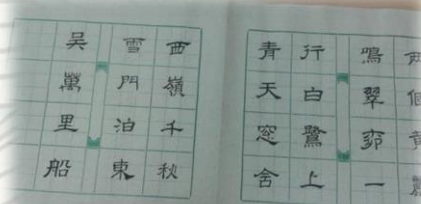 两個黄鸝
鳴翠柳一
行白鷺上
青天窓含
西嶺千秋
雪門泊東
吴萬里船